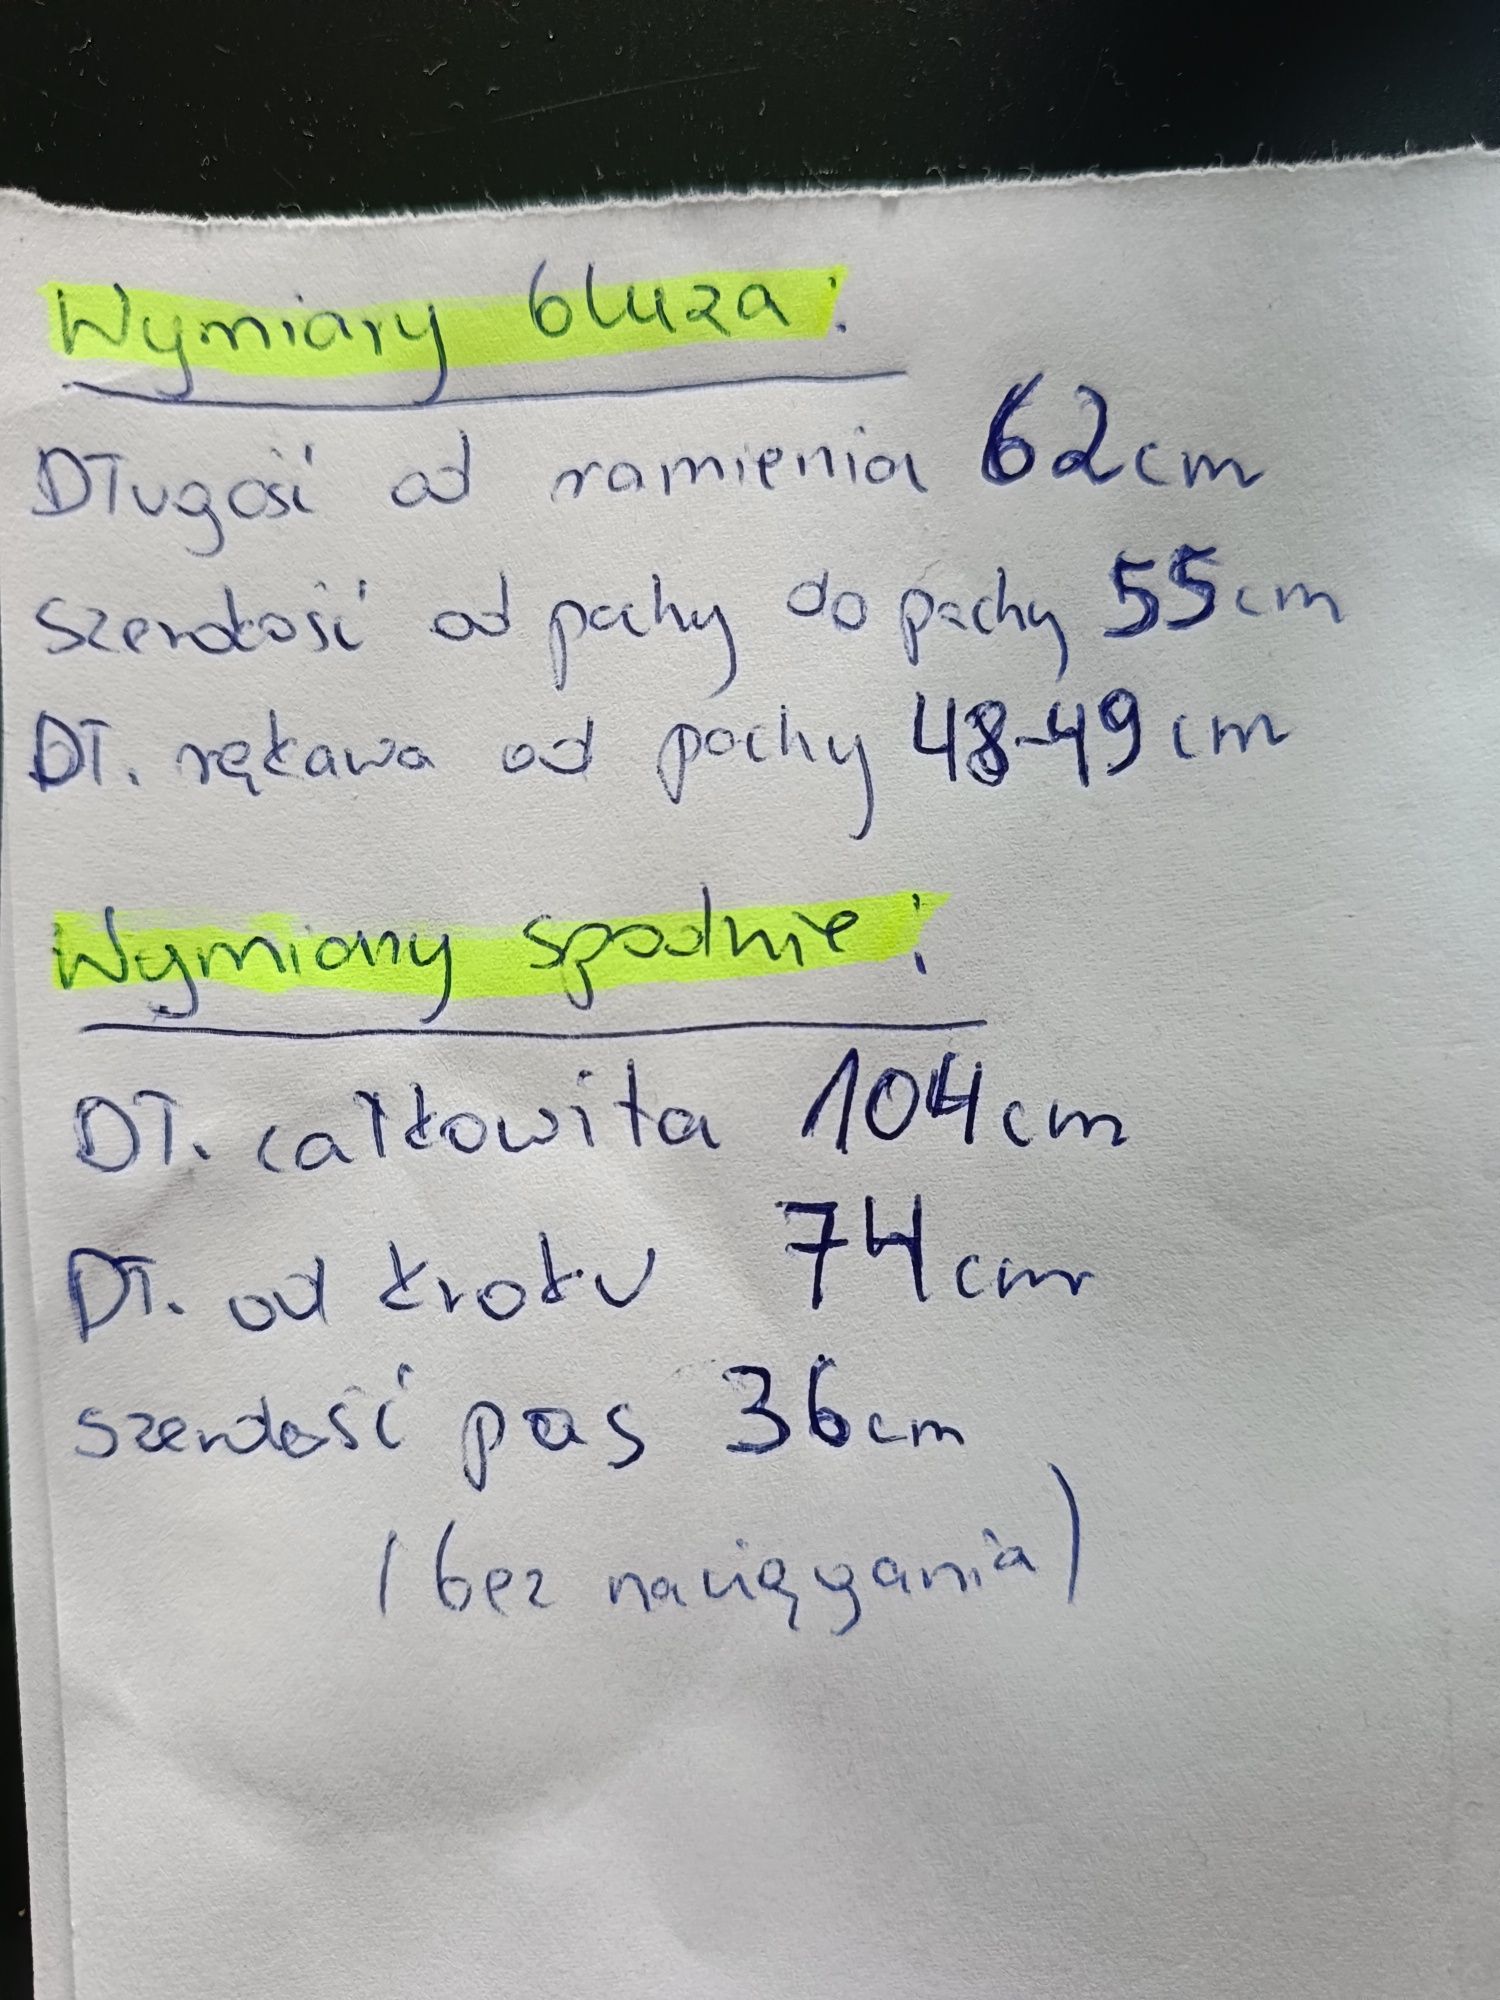 Wymiary bluza:
Długość od ramienia 62cm
szerokość od pachy do pachy 55cm
Dł. rękawa od pachy 48-49cm
Wymiary spodnie:
Dł. całkowita 104cm
Dł. od kroku 74cm
szerokość pas 36cm
(bez naciągania)